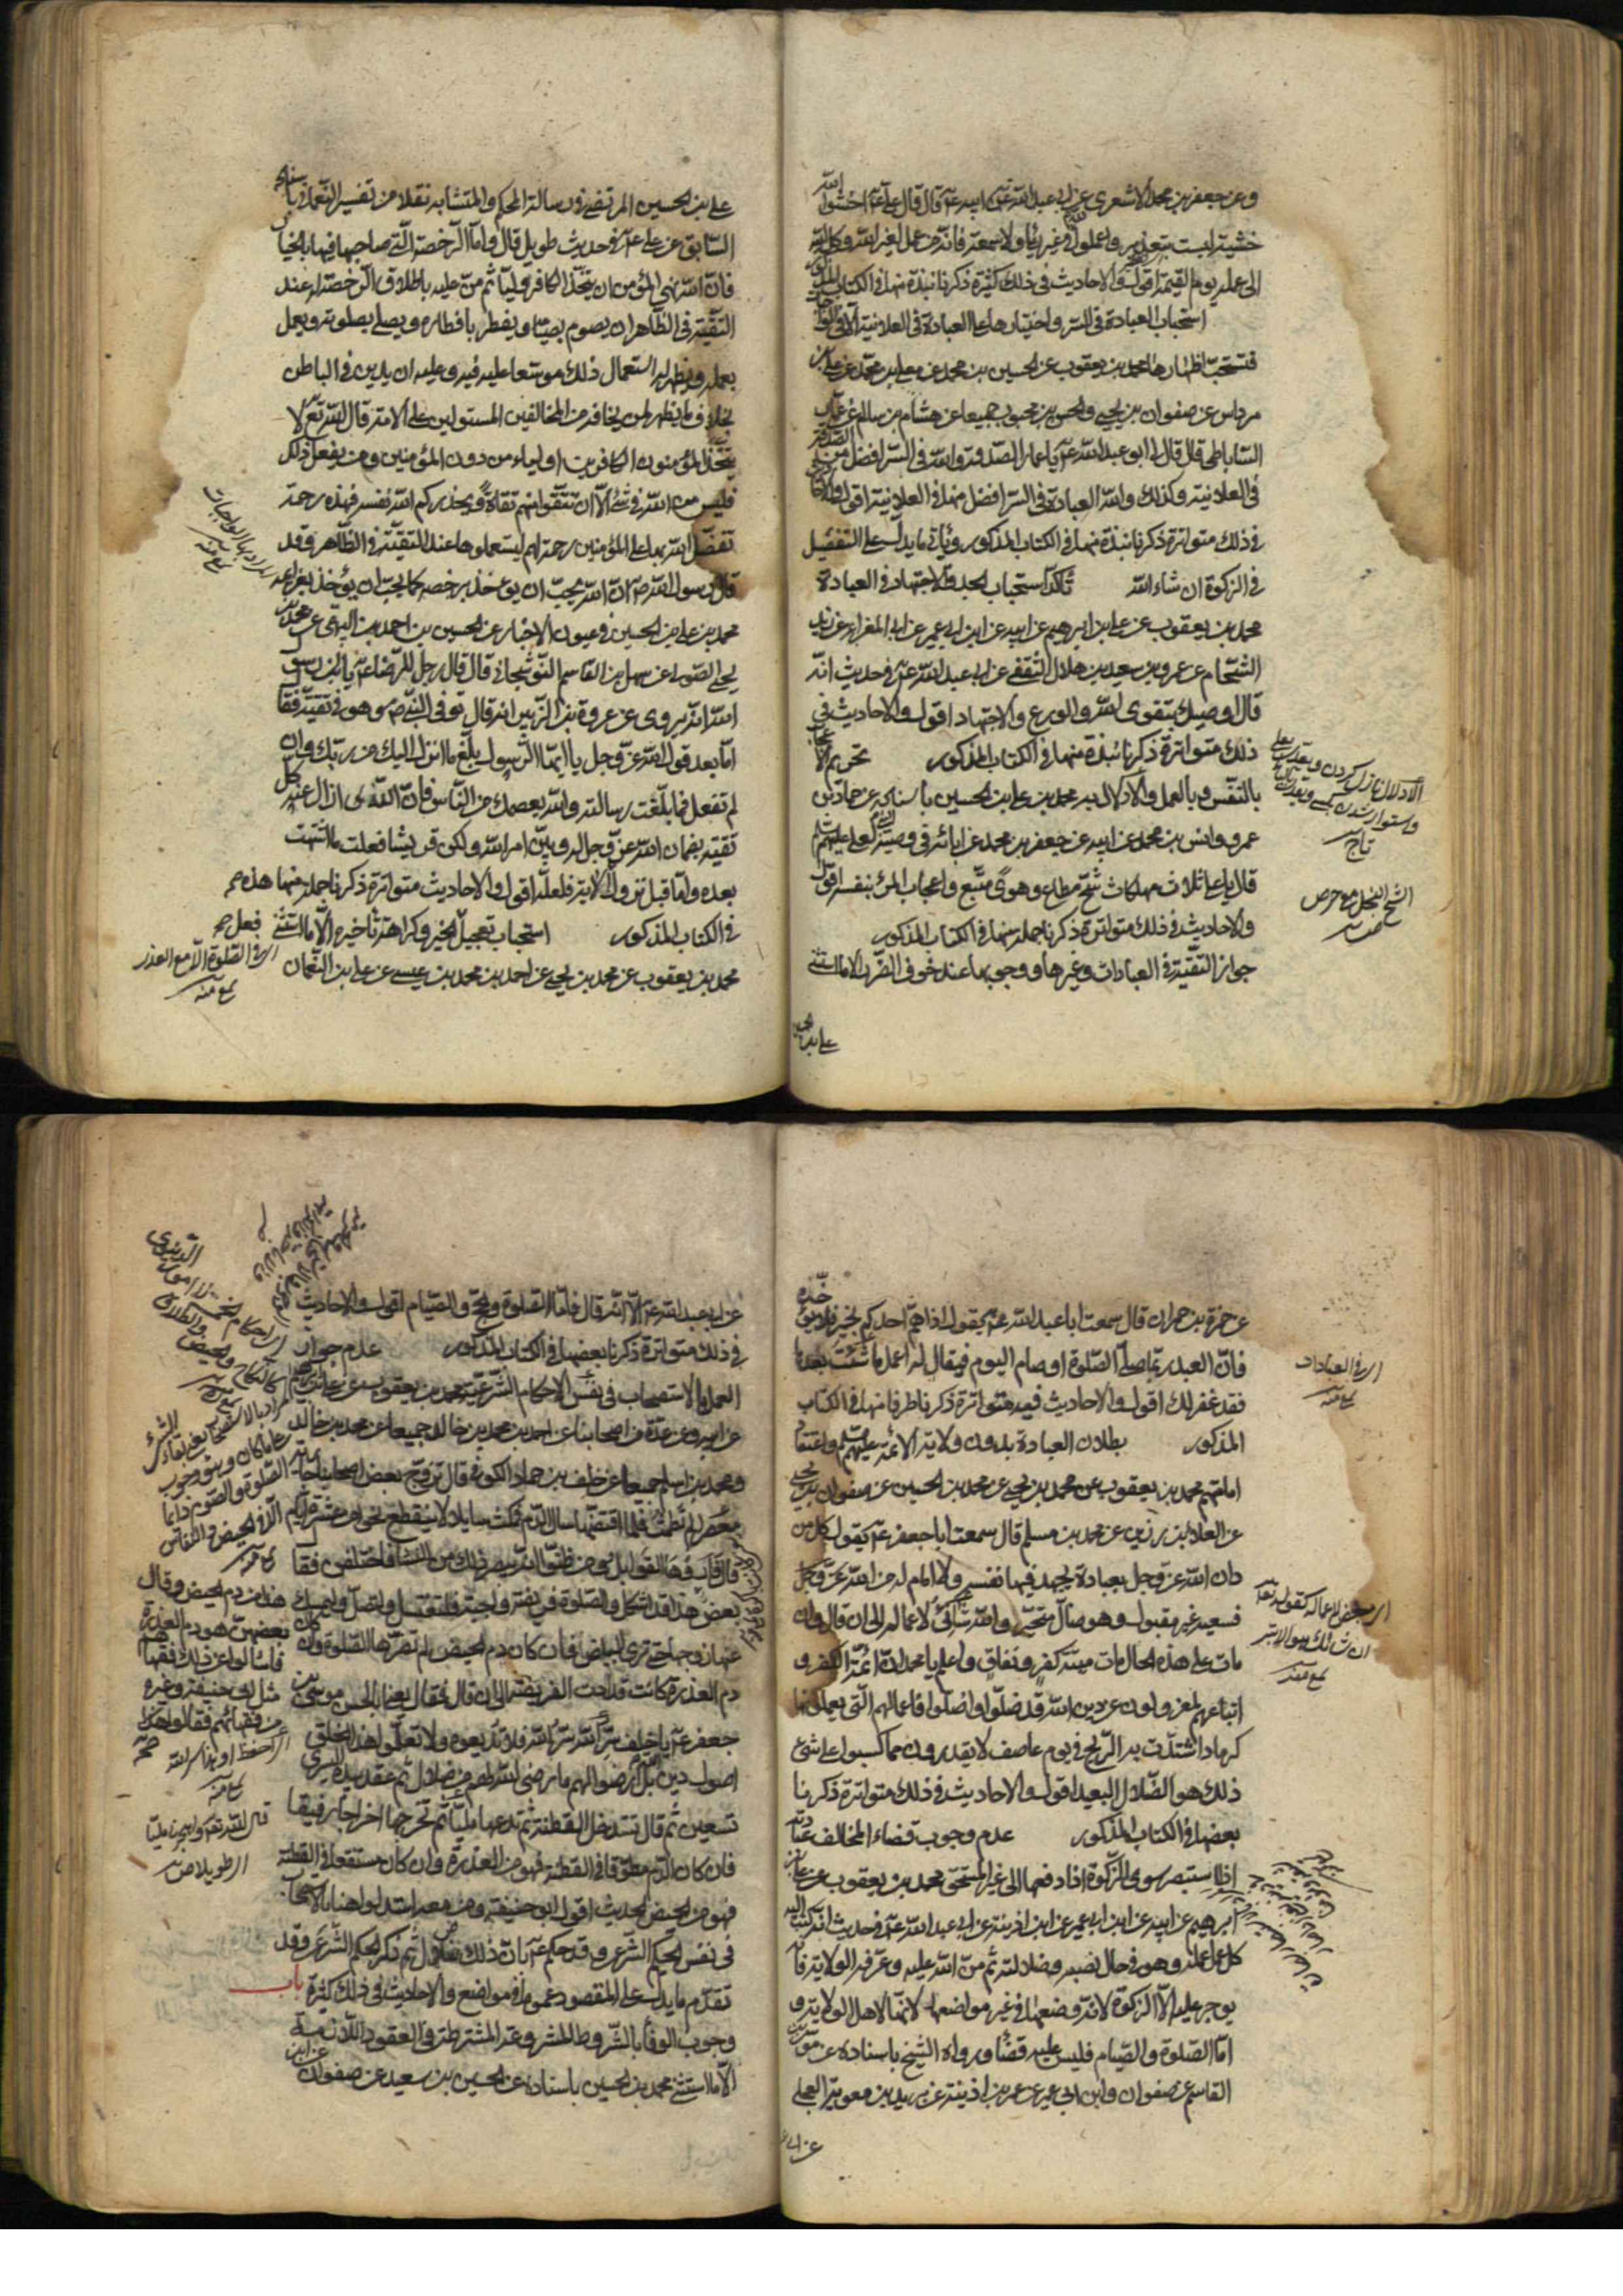 وعن جعفر بن محمد الاشعرى عن ابى عبد الله عن ابيه ع قال قال على ع اخشوا الله
خشية ليست بتعذير واعملوا لله فى غير رياء ولا سمعة فانه من عمل لغير الله وكله الله
الى عمله يوم القيمة اقول والاحاديث فى ذلك كثيرة ذكرنا نبذة منها فى الكتاب المذكور
استحباب العبادة فى السر واختيارها على العبادة فى العلانية الا فى الواجبات
فتستحب اظهارها محمد بن يعقوب عن الحسين بن محمد عن معلى بن محمد عن على بن
مرداس عن صفوان بن يحيى والحسن بن محبوب جميعا عن هشام بن سالم عن عمار
الساباطى قال قال لى ابو عبد الله ع يا عمار الصدقة والله فى السر افضل من الصدقة
فى العلانية وكذلك والله العبادة فى السر افضل منها فى العلانية اقول والاحاديث
فى ذلك متواترة ذكرنا نبذة منها فى الكتاب المذكور ويأتى ما يدل على التفضيل
فى الزكوة ان شاء الله تأكد استحباب الجد والاجتهاد فى العبادة
محمد بن يعقوب عن على بن ابرهيم عن ابيه عن ابن ابى عمير عن ابى المغراء عن زيد
الشحام عن عمرو بن سعيد بن هلال الثقفى عن ابى عبد الله ع فى حديث انه
قال اوصيك بتقوى الله والورع والاجتهاد اقول والاحاديث فى
ذلك متواترة ذكرنا نبذة منها فى الكتاب المذكور تحريم الاعجاب
بالنفس وبالعمل والادلال به محمد بن على بن الحسين باسناده عن حماد بن
عمرو وانس بن محمد عن ابيه عن جعفر بن محمد عن ابائه فى وصية النبى لعلى عليهم السلم
قال يا على ثلاث مهلكات شح مطاع وهوى متبع واعجاب المرء بنفسه اقول
والاحاديث فى ذلك متواترة ذكرنا جملة منها فى الكتاب المذكور
جواز التقية فى العبادات وغيرها ووجوبها عند خوف الضرر الا ما استثنى
على بن الحسين
الادلال ناز كردن
تاج
الشح البخل مع حرص
على بن الحسين المرتضى فى رسالة المحكم والمتشابه نقلا من تفسير النعمانى باسناده
السابق عن على ع فى حديث طويل قال واما الرخصة التى صاحبها فيها بالخيار
فان الله نهى المؤمن ان يتخذ الكافر وليا ثم من عليه باطلاق الرخصة له عند
التقية فى الظاهر ان يصوم بصيامه ويفطر بافطاره ويصلى بصلوته ويعمل
بعمله ويظهر له استعمال ذلك موسعا عليه فيه وعليه ان يدين فى الباطن
بخلاف ما يظهر لمن يخافه من المخالفين المستولين على الامة قال الله تع لا
يتخذ المؤمنون الكافرين اولياء من دون المؤمنين ومن يفعل ذلك
فليس من الله فى شئ الا ان تتقوا منهم تقاة ويحذركم الله نفسه فهذه رحمة
تفضل الله بها على المؤمنين رحمة لهم ليستعملوها عند التقية فى الظاهر وقد
قال رسول الله ص ان الله يحب ان يؤخذ برخصه كما يحب ان يؤخذ بعزائمه
محمد بن على بن الحسين فى عيون الاخبار عن الحسين بن احمد البيهقى عن محمد بن
يحيى الصولى عن سهل بن القاسم النوشجانى قال قال رجل للرضا ع يا ابن رسول
الله انه يروى عن عروة بن الزبير انه قال توفى النبى ص وهو فى تقية فقال
اما بعد قول الله عز وجل يا ايها الرسول بلغ ما انزل اليك من ربك وان
لم تفعل فما بلغت رسالته والله يعصمك من الناس فان الله ازال عنه كل
تقية بضمان الله عز وجل له وبين امر الله ولكن قريشا فعلت ما اشتهت
بعده واما قبل نزول الاية فلعله اقول والاحاديث متواترة ذكرنا جملة منها هذه
فى الكتاب المذكور استحباب تعجيل الخير وكراهة تأخيره الا ما استثنى
محمد بن يعقوب عن محمد بن يحيى عن احمد بن محمد بن عيسى عن على بن النعمان
المراد بها الواجبات
منه
فعله
اى فى الصلوة الا مع العذر
منه
عن حمزة بن حمران قال سمعت ابا عبد الله ع يقول اذا هم احدكم بخير فلا يؤخره
فان العبد ربما صلى الصلوة او صام اليوم فيقال له اعمل ما شئت بعدها
فقد غفر لك اقول والاحاديث فيه متواترة ذكرنا طرفا منها فى الكتاب
المذكور بطلان العبادة بدون ولاية الائمة عليهم السلم واعتقاد
امامتهم محمد بن يعقوب عن محمد بن يحيى عن محمد بن الحسين عن صفوان بن يحيى
عن العلا بن رزين عن محمد بن مسلم قال سمعت ابا جعفر ع يقول كل من
دان الله عز وجل بعبادة يجهد فيها نفسه ولا امام له من الله عز وجل
فسعيه غير مقبول وهو ضال متحير والله شانئ لاعماله الى ان قال وان
مات على هذه الحال مات ميتة كفر ونفاق واعلم يا محمد ان ائمة الكفر و
اتباعهم لمعزولون عن دين الله قد ضلوا واضلوا فاعمالهم التى يعملونها
كرماد اشتدت به الريح فى يوم عاصف لا يقدرون مما كسبوا على شئ
ذلك هو الضلال البعيد اقول والاحاديث فى ذلك متواترة ذكرنا
بعضها فى الكتاب المذكور عدم وجوب قضاء المخالف عبادته
اذا استبصر سوى الزكوة اذا دفعها الى غير المستحق محمد بن يعقوب عن على بن
ابرهيم عن ابيه عن ابن ابى عمير عن ابن اذينة عن ابى عبد الله ع فى حديث انه كتب اليه
كل عمل عمله وهو فى حال نصبه وضلالته ثم من الله عليه وعرفه الولاية فانه
يوجر عليه الا الزكوة لانه وضعها فى غير مواضعها لانها لاهل الولاية و
اما الصلوة والصيام فليس عليه قضاء ورواه الشيخ باسناده عن موسى بن
القاسم عن صفوان وابن ابى عمير عن عمر بن اذينة عن بريد بن معوية العجلى
عن ابى
اى فى العبادات
منه
اى مبغض لاعماله كقوله تع
ان شانئك هو الابتر
منه
عن ابى عبد الله ع الا انه قال فاما الصلوة والحج والصيام اقول والاحاديث
فى ذلك متواترة ذكرنا بعضها فى الكتاب المذكور عدم جواز
العمل بالاستصحاب فى نفس الاحكام الشرعية محمد بن يعقوب عن على بن ابرهيم
عن ابيه وعن عدة من اصحابنا عن احمد بن محمد بن خالد جميعا عن محمد بن خالد
ومحمد بن اسلم جميعا عن خلف بن حماد الكوفى قال تزوج بعض اصحابنا جارية
معصرا لم تطمث فلما اقتضها سال الدم فمكث سايلا لا ينقطع نحوا من عشرة ايام
قال فاروها القوابل ومن ظنوا انه يبصر ذلك من النساء فاختلفن فقال
بعض هذا من دم الحيض وقال
بعضهن هو دم العذرة
فسألوا عن ذلك فقهاءهم
مثل ابى حنيفة وغيره
من فقهائهم فقالوا هذا
قد اشكل والصلوة فريضة واجبة فلتغتسل ولتصل وليمسك
عنها زوجها حتى ترى البياض فان كان دم الحيض لم تضرها الصلوة وان كان
دم العذرة كانت قد ادت الفريضة الى ان قال فقال يعنى ابا الحسن موسى بن
جعفر ع يا خلف سر الله سر الله فلا تذيعوه ولا تعلموا هذا الخلق
اصول دين الله بل ارضوا لهم ما رضى الله لهم من ضلال ثم عقد بيده اليسرى
تسعين ثم قال تستدخل القطنة ثم تدعها مليا ثم تخرجها اخراجا رفيقا
فان كان الدم مطوقا فى القطنة فهو من العذرة وان كان مستنقعا فى القطنة
فهو من الحيض الحديث اقول ابو حنيفة ومن معه استدلوا هنا بالاستصحاب
فى نفس الحكم الشرعى وقد حكم ع بان ذلك ضلال ثم ذكر الحكم الشرعى وقد
تقدم ما يدل على المقصود عموما فى مواضع والاحاديث فى ذلك كثيرة باب
وجوب الوفاء بالشروط المشروعة المشترطة فى العقود اللازمة
الا ما استثنى محمد بن الحسين باسناده عن الحسين بن سعيد عن صفوان عن ابن
المراد بالاستصحاب
الصلوة والصوم
الحيض والنفاس
منه
اى احفظ او اذكر سر الله
منه
قال الله تع واهجرنى مليا
اى طويلا ص